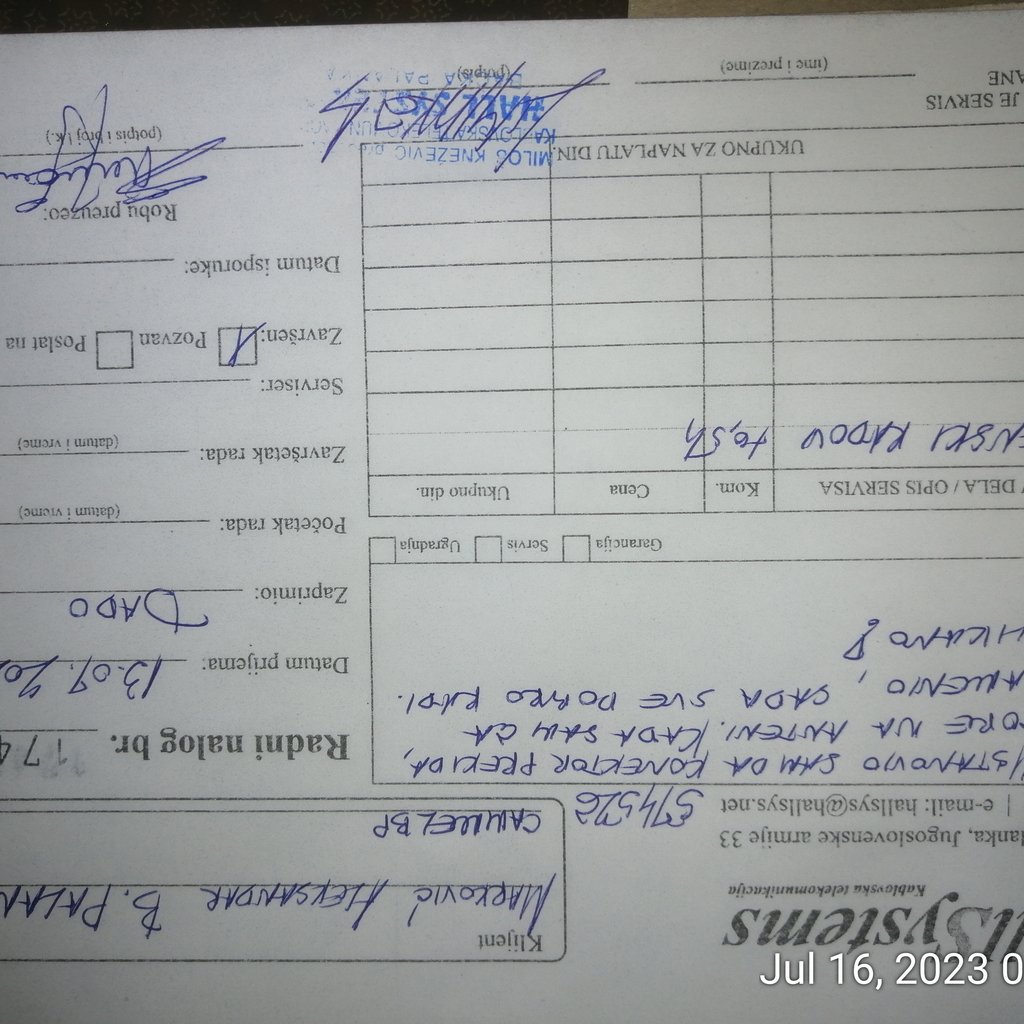 llSystems
Kablovska telekomunikacija
lanka, Jugoslovenske armije 33
| e-mail: hallsys@hallsys.net
Klijent
MARKOVIĆ ALEKSANDAR B. PALAN
Radni nalog br. 174
USTANOVIO SAM DA KONEKTOR PREKIDA,
ORE NA ANTENI. KADA SAM GA
, SADA SVE DOBRO RADI.
Datum prijema: 13.07.20
Zaprimio: DADO
Početak rada:
(datum i vreme)
Završetak rada:
(datum i vreme)
Serviser:
Završen: Pozvan Poslat na
Datum isporuke:
Robu preuzeo:
(potpis i broj l.k.)
Garancija Servis Ugradnja
DELA / OPIS SERVISA Kom. Cena Ukupno din.
NSKI RADOVI
UKUPNO ZA NAPLATU DIN.
MILOŠ KNEŽEVIĆ
HALL SYSTEM
BAČKA PALANKA
JE SERVIS
ANE
(ime i prezime)
(potpis)
Jul 16, 2023 0